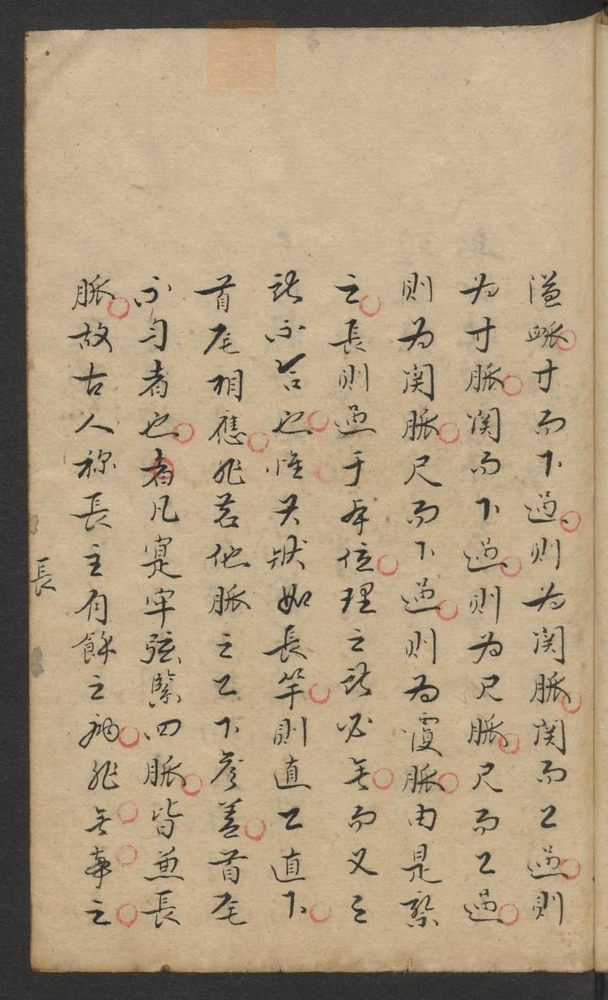 溢脈寸而下過則为関脈関而上過則
为寸脈関而下過則为尺脈尺而上過
則为関脈尺而下過則为覆脈由是察
之長則過于本位理之所必無而又之
所不合也惟其狀如長竿則直上直下
首尾相應非若他脈之上下參差首尾
不勻者也者凡寔牢弦緊四脈皆兼長
脈故古人称長主有餘之病非無事之
長